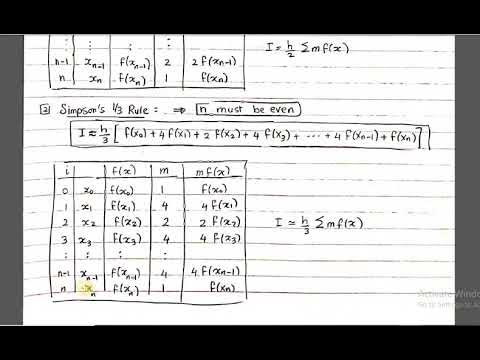 ⋮ ⋮ ⋮ ⋮ ⋮
n-1 xₙ₋₁ f(xₙ₋₁) 2 2 f(xₙ₋₁)
n xₙ f(xₙ) 1 f(xₙ)
I = h/2 Σ m f(x)
2 Simpson's 1/3 Rule = ⇒ n must be even
I ≈ h/3 [ f(x₀) + 4 f(x₁) + 2 f(x₂) + 4 f(x₃) + ... + 4 f(xₙ₋₁) + f(xₙ) ]
i f(x) m m f(x)
0 x₀ f(x₀) 1 f(x₀)
1 x₁ f(x₁) 4 4 f(x₁)
2 x₂ f(x₂) 2 2 f(x₂)
3 x₃ f(x₃) 4 4 f(x₃)
⋮ ⋮ ⋮ ⋮ ⋮
n-1 xₙ₋₁ f(xₙ₋₁) 4 4 f(xₙ₋₁)
n xₙ f(xₙ) 1 f(xₙ)
I ≃ h/3 Σ m f(x)
Activate Windo
Go to Settings to A